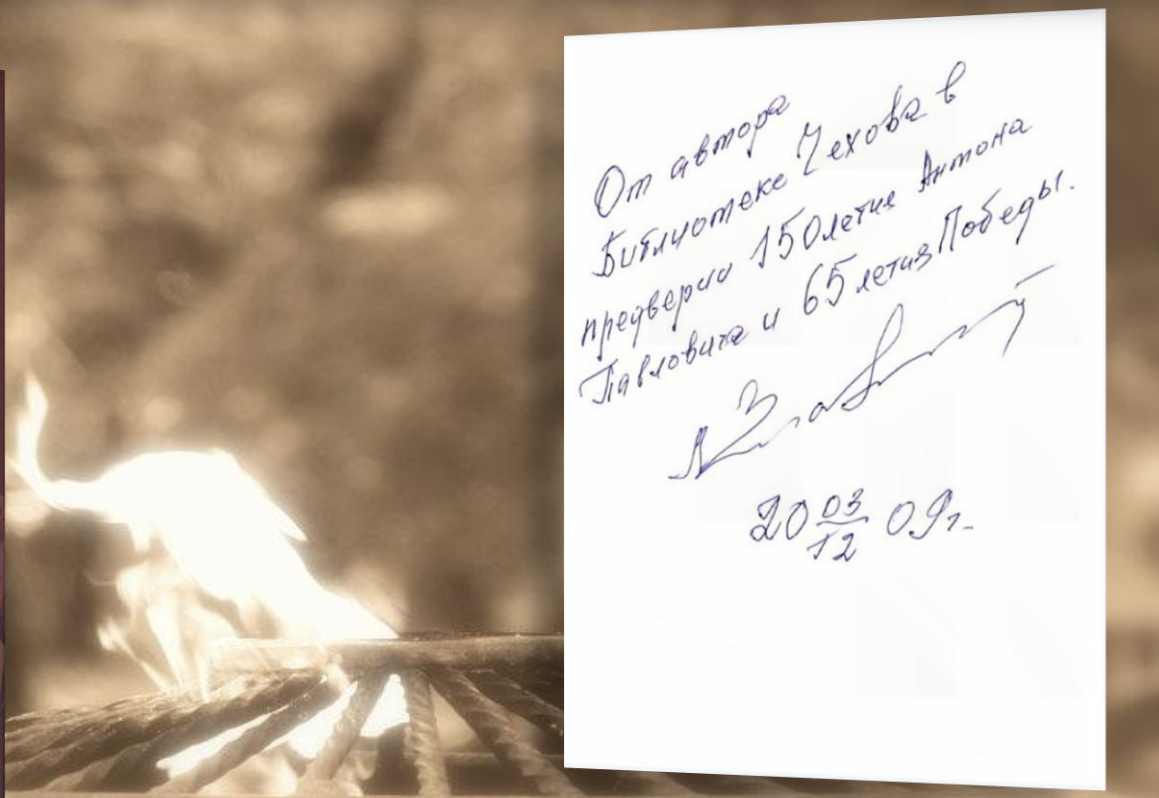 От автора
Библиотеке Чехова в
предверии 150летие Антона
Павловича и 65летия Победы.
20 03/12 09г.